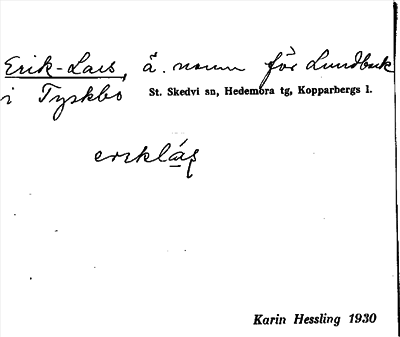 Erik-Lars, å. namn för Lundbäck
i Tyskbo St. Skedvi sn, Hedemora tg, Kopparbergs l.
erɩklás
Karin Hessling 1930